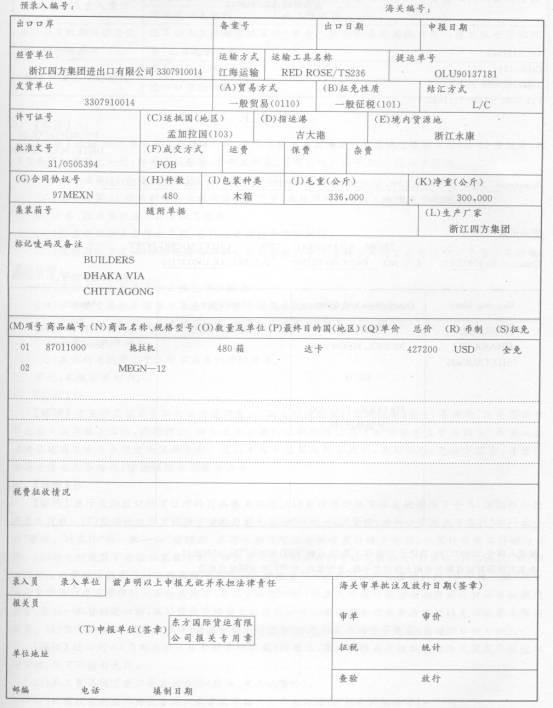 预录入编号： 海关编号：
出口口岸 备案号 出口日期 申报日期
经营单位 运输方式 运输工具名称 提运单号
浙江四方集团进出口有限公司3307910014 江海运输 RED ROSE/TS236 OLU90137181
发货单位 (A)贸易方式 (B)征免性质 结汇方式
3307910014 一般贸易(0110) 一般征税(101) L/C
许可证号 (C)运抵国(地区) (D)指运港 (E)境内货源地
孟加拉国(103) 吉大港 浙江永康
批准文号 (F)成交方式 运费 保费 杂费
31/0505394 FOB
(G)合同协议号 (H)件数 (I)包装种类 (J)毛重(公斤) (K)净重(公斤)
97MEXN 480 木箱 336,000 300,000
集装箱号 随附单据 (L)生产厂家
浙江四方集团
标记唛码及备注
BUILDERS
DHAKA VIA
CHITTAGONG
(M)项号 商品编号 (N)商品名称、规格型号 (O)数量及单位 (P)最终目的国(地区) (Q)单价 总价 (R) 币制 (S)征免
01 87011000 拖拉机 480 箱 达卡 427200 USD 全免
02 MEGN—12
税费征收情况
录入员 录入单位 兹声明以上申报无讹并承担法律责任 海关审单批注及放行日期(签章)
报关员
审单 审价
(T)申报单位(签章) 东方国际货运有限
公司报关专用章
征税 统计
单位地址
查验 放行
邮编 电话 填制日期